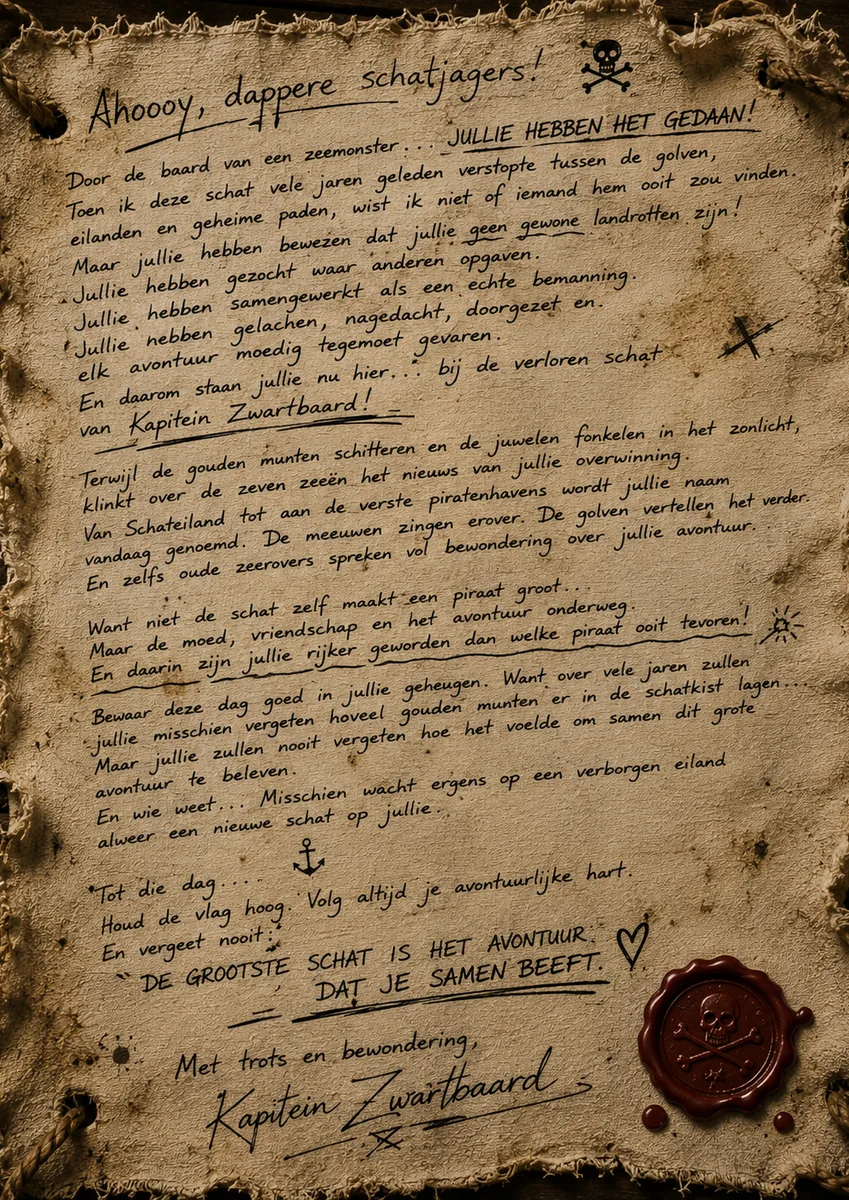 Ahoooy, dappere schatjagers!
Door de baard van een zeemonster... JULLIE HEBBEN HET GEDAAN!
Toen ik deze schat vele jaren geleden verstopte tussen de golven,
eilanden en geheime paden, wist ik niet of iemand hem ooit zou vinden.
Maar jullie hebben bewezen dat jullie geen gewone landrotten zijn!
Jullie hebben gezocht waar anderen opgaven.
Jullie hebben samengewerkt als een echte bemanning.
Jullie hebben gelachen, nagedacht, doorgezet en.
elk avontuur moedig tegemoet gevaren.
En daarom staan jullie nu hier... bij de verloren schat
van Kapitein Zwartbaard!
Terwijl de gouden munten schitteren en de juwelen fonkelen in het zonlicht,
klinkt over de zeven zeeën het nieuws van jullie overwinning.
Van Schateiland tot aan de verste piratenhavens wordt jullie naam
vandaag genoemd. De meeuwen zingen erover. De golven vertellen het verder.
En zelfs oude zeerovers spreken vol bewondering over jullie avontuur.
Want niet de schat zelf maakt een piraat groot...
Maar de moed, vriendschap en het avontuur onderweg.
En daarin zijn jullie rijker geworden dan welke piraat ooit tevoren!
Bewaar deze dag goed in jullie geheugen. Want over vele jaren zullen
jullie misschien vergeten hoveel gouden munten er in de schatkist lagen...
Maar jullie zullen nooit vergeten hoe het voelde om samen dit grote
avontuur te beleven.
En wie weet... Misschien wacht ergens op een verborgen eiland
alweer een nieuwe schat op jullie.
Tot die dag....
Houd de vlag hoog. Volg altijd je avontuurlijke hart.
En vergeet nooit:
"DE GROOTSTE SCHAT IS HET AVONTUUR.
DAT JE SAMEN BEEFT.
Met trots en bewondering,
Kapitein Zwartbaard